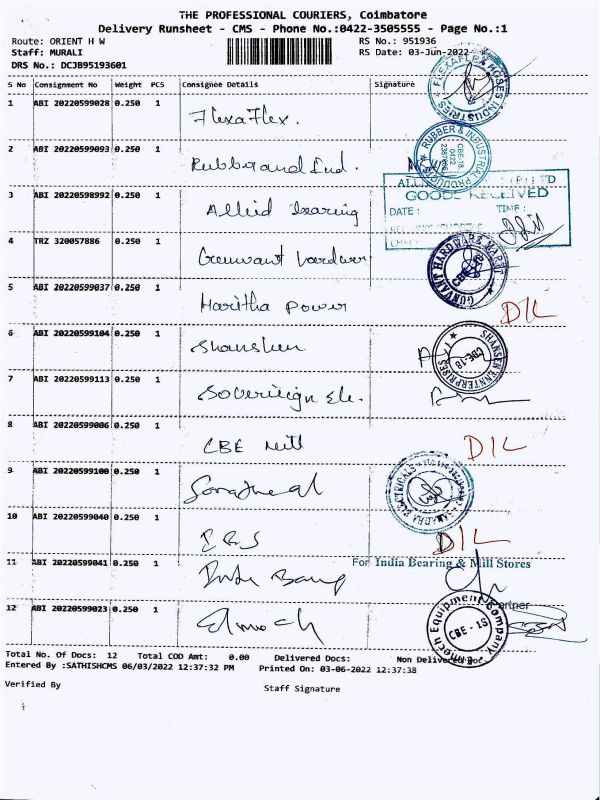 THE PROFESSIONAL COURIERS, Coimbatore
Delivery Runsheet - CMS - Phone No.:0422-3505555 - Page No.:1
Route: ORIENT H W RS No.: 951936
Staff: MURALI RS Date: 03-Jun-2022
DRS No.: DCJB95193601
S No Consignment No Weight PCS Consignee Details Signature
FLEXAFLEX HOSES INDUSTRIES
1 ABI 20220599028 0.250 1 Flexaflex.
RUBBER & INDUSTRIAL PRODUCTS
CBE-18
0422
2 ABI 20220599093 0.250 1 Rubber and Ind.
3 ABI 20220598992 0.250 1 Allied bearing
GOODS RECEIVED
DATE : TIME :
4 TRZ 320057886 0.250 1 Gunvant Hardwer
GUNVANT HARDWARE MART
5 ABI 20220599037 0.250 1 Haritha Power D/L
6 ABI 20220599104 0.250 1 Shanshen
SHANSEN ENTERPRISES
CBE-18
7 ABI 20220599113 0.250 1 Sovereign Ele.
8 ABI 20220599006 0.250 1 CBE Mill D/L
9 ABI 20220599100 0.250 1
ELECTRICALS
10 ABI 20220599040 0.250 1 D/L
11 ABI 20220599041 0.250 1 For India Bearing & Mill Stores
Partner
12 ABI 20220599023 0.250 1 Elmech
Elmech Equipment Company
CBE - 18
Total No. Of Docs: 12 Total COD Amt: 0.00 Delivered Docs: Non Delivered Doc:
Entered By :SATHISHCMS 06/03/2022 12:37:32 PM Printed On: 03-06-2022 12:37:38
Verified By Staff Signature